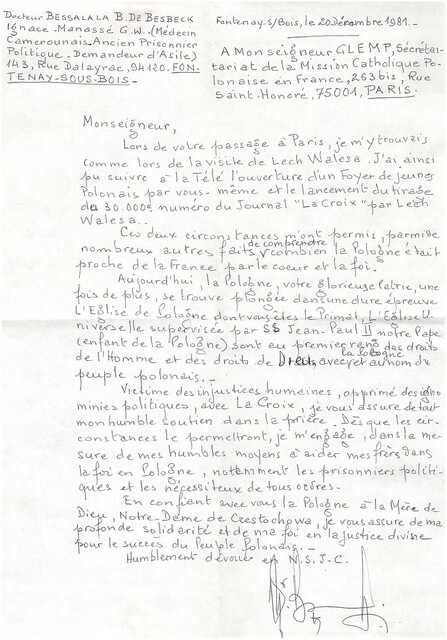 Docteur BESSALA LA B. DE BESBECK
Ignace Manassé G.W. (Médecin
Camerounais. Ancien Prisonnier
Politique. Demandeur d'Asile)
143, Rue Dalayrac, 94120. FON-
TENAY-SOUS-BOIS.-
Fontenay-s/Bois, le 20 Décembre 1981.-
A Monseigneur GLEMP, Secréta-
riat de la Mission Catholique Po-
lonaise en France, 263 bis, Rue
Saint-Honoré, 75001, PARIS.-
Monseigneur,
Lors de votre passage à Paris, je m'y trouvais
comme lors de la visite de Lech Walesa. J'ai ainsi
pu suivre à la Télé l'ouverture d'un Foyer de jeunes
Polonais par vous-même et le lancement du tirage
du 30.000è numéro du Journal "La Croix" par Lech
Walesa..
Ces deux circonstances m'ont permis, parmi de
nombreux autres faits, de comprendre combien la Pologne était
proche de la France par le coeur et la foi.
Aujourd'hui, la Pologne, votre glorieuse Patrie, une
fois de plus, se trouve plongée dans une dure épreuve.
L'Eglise de Pologne dont vous êtes le Primat, L'Eglise U-
niverselle supervisée par SS Jean-Paul II notre Pape
(enfant de la Pologne) sont au premier rang des droits
de l'Homme et des droits de Dieu, avec la Pologne et au nom du
peuple polonais.-
Victime des injustices humaines, opprimé des igno-
minies politiques, avec La Croix, je vous assure de tout
mon humble soutien dans la prière. Dès que les cir-
constances le permettront, je m'engage, dans la me-
sure de mes humbles moyens à aider mes frères dans
la foi en Pologne, notamment les prisonniers politi-
ques et les nécessiteux de tous ordres.-
En confiant avec vous la Pologne à la Mère de
Dieu, Notre-Dame de Czestochowa, je vous assure de ma
profonde solidarité et de ma foi en la justice divine
pour le succès du Peuple Polonais.-
Humblement dévoué en N.S.J-C.